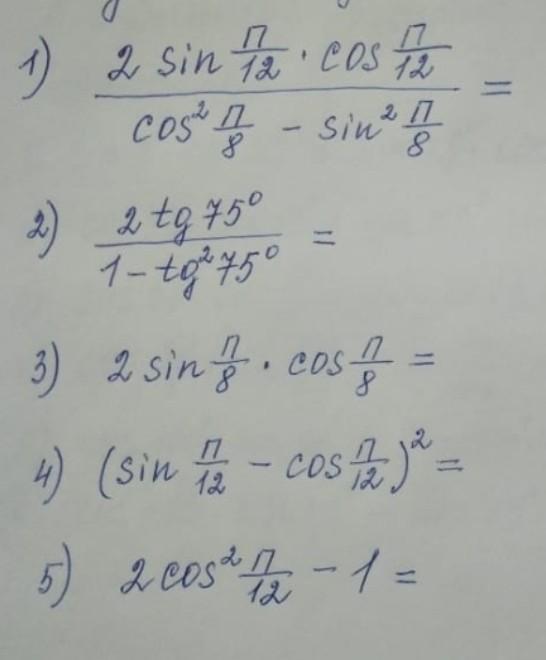 1) \frac{2 sin \frac{π}{12} · cos \frac{π}{12}}{cos² \frac{π}{8} - sin² \frac{π}{8}} =
2) \frac{2 tg 75°}{1 - tg² 75°} =
3) 2 sin \frac{π}{8} · cos \frac{π}{8} =
4) (sin \frac{π}{12} - cos \frac{π}{12})² =
5) 2 cos² \frac{π}{12} - 1 =